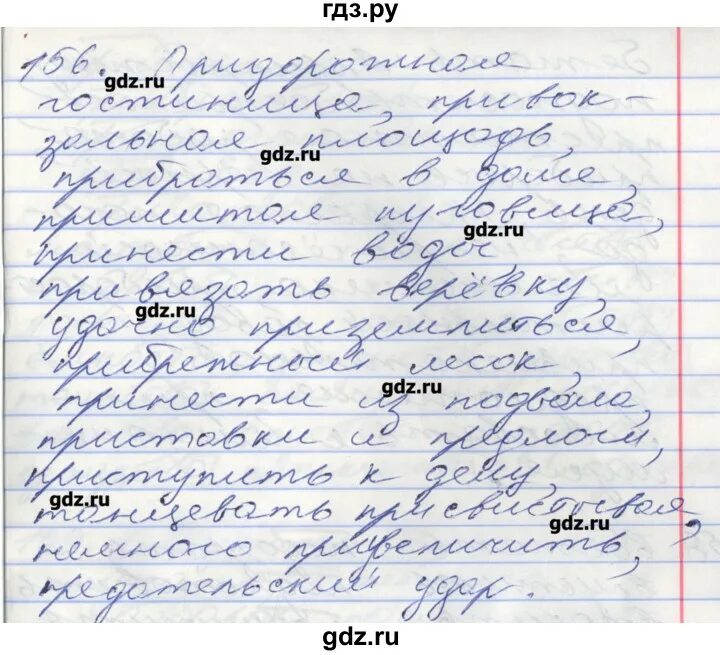 гдз.ру
156. Придорожная
gdz.ru
гостиница, привок-
зальная площадь,
gdz.ru
прибраться в доме,
пришитая пуговица,
gdz.ru
принести воды,
привязать верёвку,
gdz.ru
удачно приземлиться,
прибрежный лесок,
gdz.ru
принести из подвала,
приставки и предлоги,
приступить к делу,
gdz.ru
танцевать присвистывая,
gdz.ru
немного преувеличить,
предательский удар.
gdz.ru